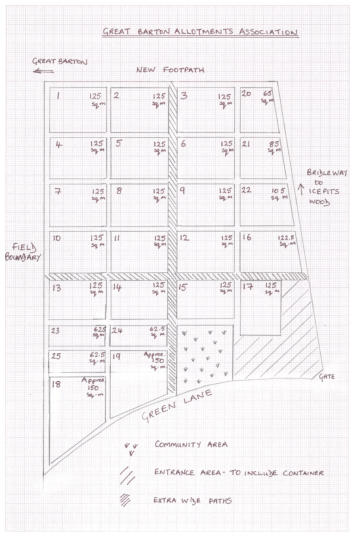 GREAT BARTON ALLOTMENTS ASSOCIATION
GREAT BARTON
NEW FOOTPATH
1 125 Sq.m
2 125 Sq.m
3 125 Sq.m
20 65 Sq.m
4 125 Sq.m
5 125 Sq.m
6 125 Sq.m
21 85 Sq.m
7 125 Sq.m
8 125 Sq.m
9 125 Sq.m
22 105 Sq.m
BRIDLEWAY
TO
ICEPITS
WOOD
10 125 Sq.m
11 125 Sq.m
12 125 Sq.m
16 122.5 Sq.m
FIELD
BOUNDARY
13 125 Sq.m
14 125 Sq.m
15 125 Sq.m
17 125 Sq.m
23 62.5 Sq.m
24 62.5 Sq.m
25 62.5 Sq.m
19 Approx 150 Sq.m
18 Approx 150 Sq.m
GATE
GREEN LANE
COMMUNITY AREA
ENTRANCE AREA - TO INCLUDE CONTAINER
EXTRA WIDE PATHS